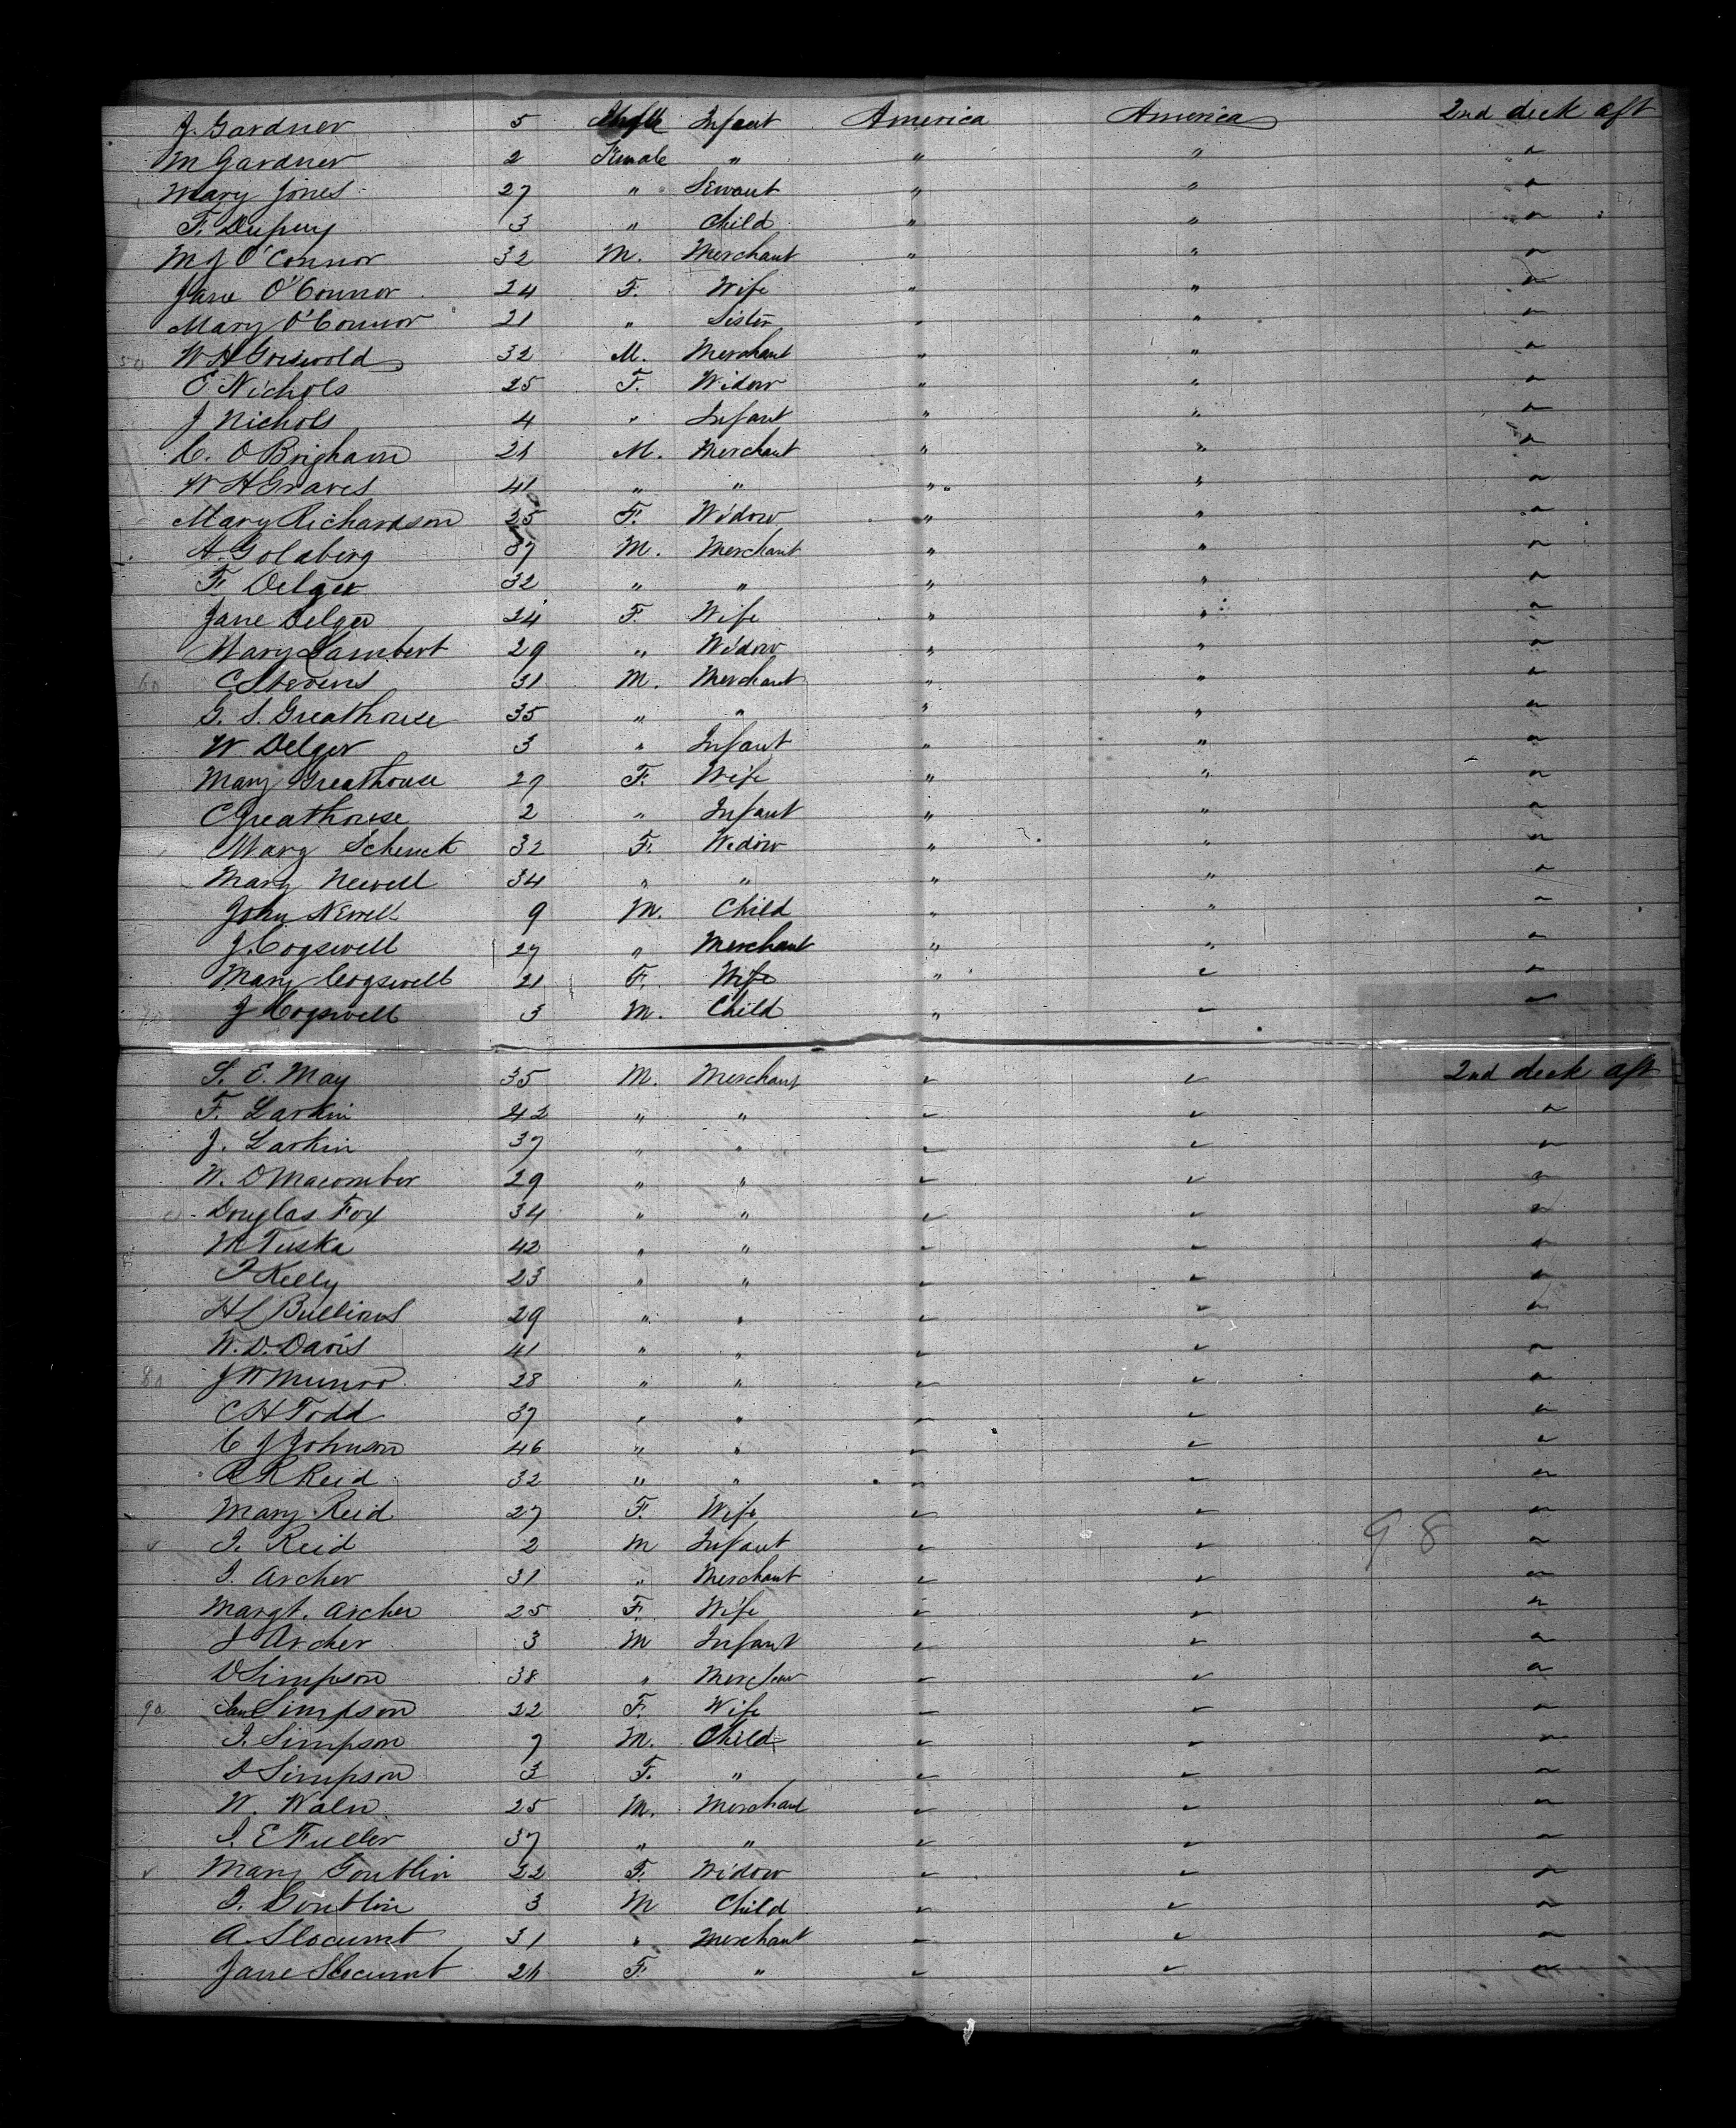 J. Gardner 5 Infant America America 2nd deck aft
M Gardner 2 Female " " " "
Mary Jones 27 " Servant " " "
F. Dupuy 3 " Child " " "
M J O'Connor 32 M. Merchant " " "
Jane O'Connor 24 F. Wife " " "
Mary O'Connor 21 " Sister " " "
50 W H Griswold 32 M. Merchant " " "
E. Nichols 25 F. Widow " " "
J Nichols 4 " Infant " " "
C. O Brigham 21 M. Merchant " " "
W H Graves 41 " " " " "
Mary Richardson 35 F. Widow " " "
A. Goldberg 37 M. Merchant " " "
F. Delger 32 " " " " "
Jane Delger 24 F. Wife " " "
Mary Lambert 29 " Widow " " "
60 C Stevens 31 M. Merchant " " "
G. S. Greathouse 35 " " " " "
W Delger 3 " Infant " " "
Mary Greathouse 27 F. Wife " " "
C Greathouse 2 " Infant " " "
Mary Schenck 32 F. Widow " " "
Mary Newell 34 " " " " "
John Newell 9 M. Child " " "
J. Cogswell 27 " Merchant " " "
Mary Cogswell 21 F. Wife " " "
J Cogswell 3 M. Child " " "
S. E. May 35 M. Merchant " " 2nd deck aft
F. Larkin 42 " " " " "
J. Larkin 37 " " " " "
W. O Macomber 29 " " " " "
Douglas Fox 34 " " " " "
M Tuska 42 " " " " "
J Kelly 23 " " " " "
H L Bullions 29 " " " " "
W. D. Davis 41 " " " " "
80 J W Munro 28 " " " " "
C H Todd 37 " " " " "
C J Johnson 46 " " " " "
R R Reid 32 " " " " "
Mary Reid 27 F. Wife " " "
J. Reid 2 M Infant " " "
98
J. Archer 31 " Merchant " " "
Margt. Archer 25 F. Wife " " "
J Archer 3 M Infant " " "
D Simpson 38 " Merchant " " "
90 Jane Simpson 22 F. Wife " " "
J. Simpson 7 M. Child " " "
D Simpson 3 F. " " " "
W. Waln 25 M. Merchant " " "
J. E Fuller 37 " " " " "
Mary Goublin 22 F. Widow " " "
J. Goublin 3 M Child " " "
A. Slocumt 31 " Merchant " " "
Jane Slocumt 26 F. " " " "